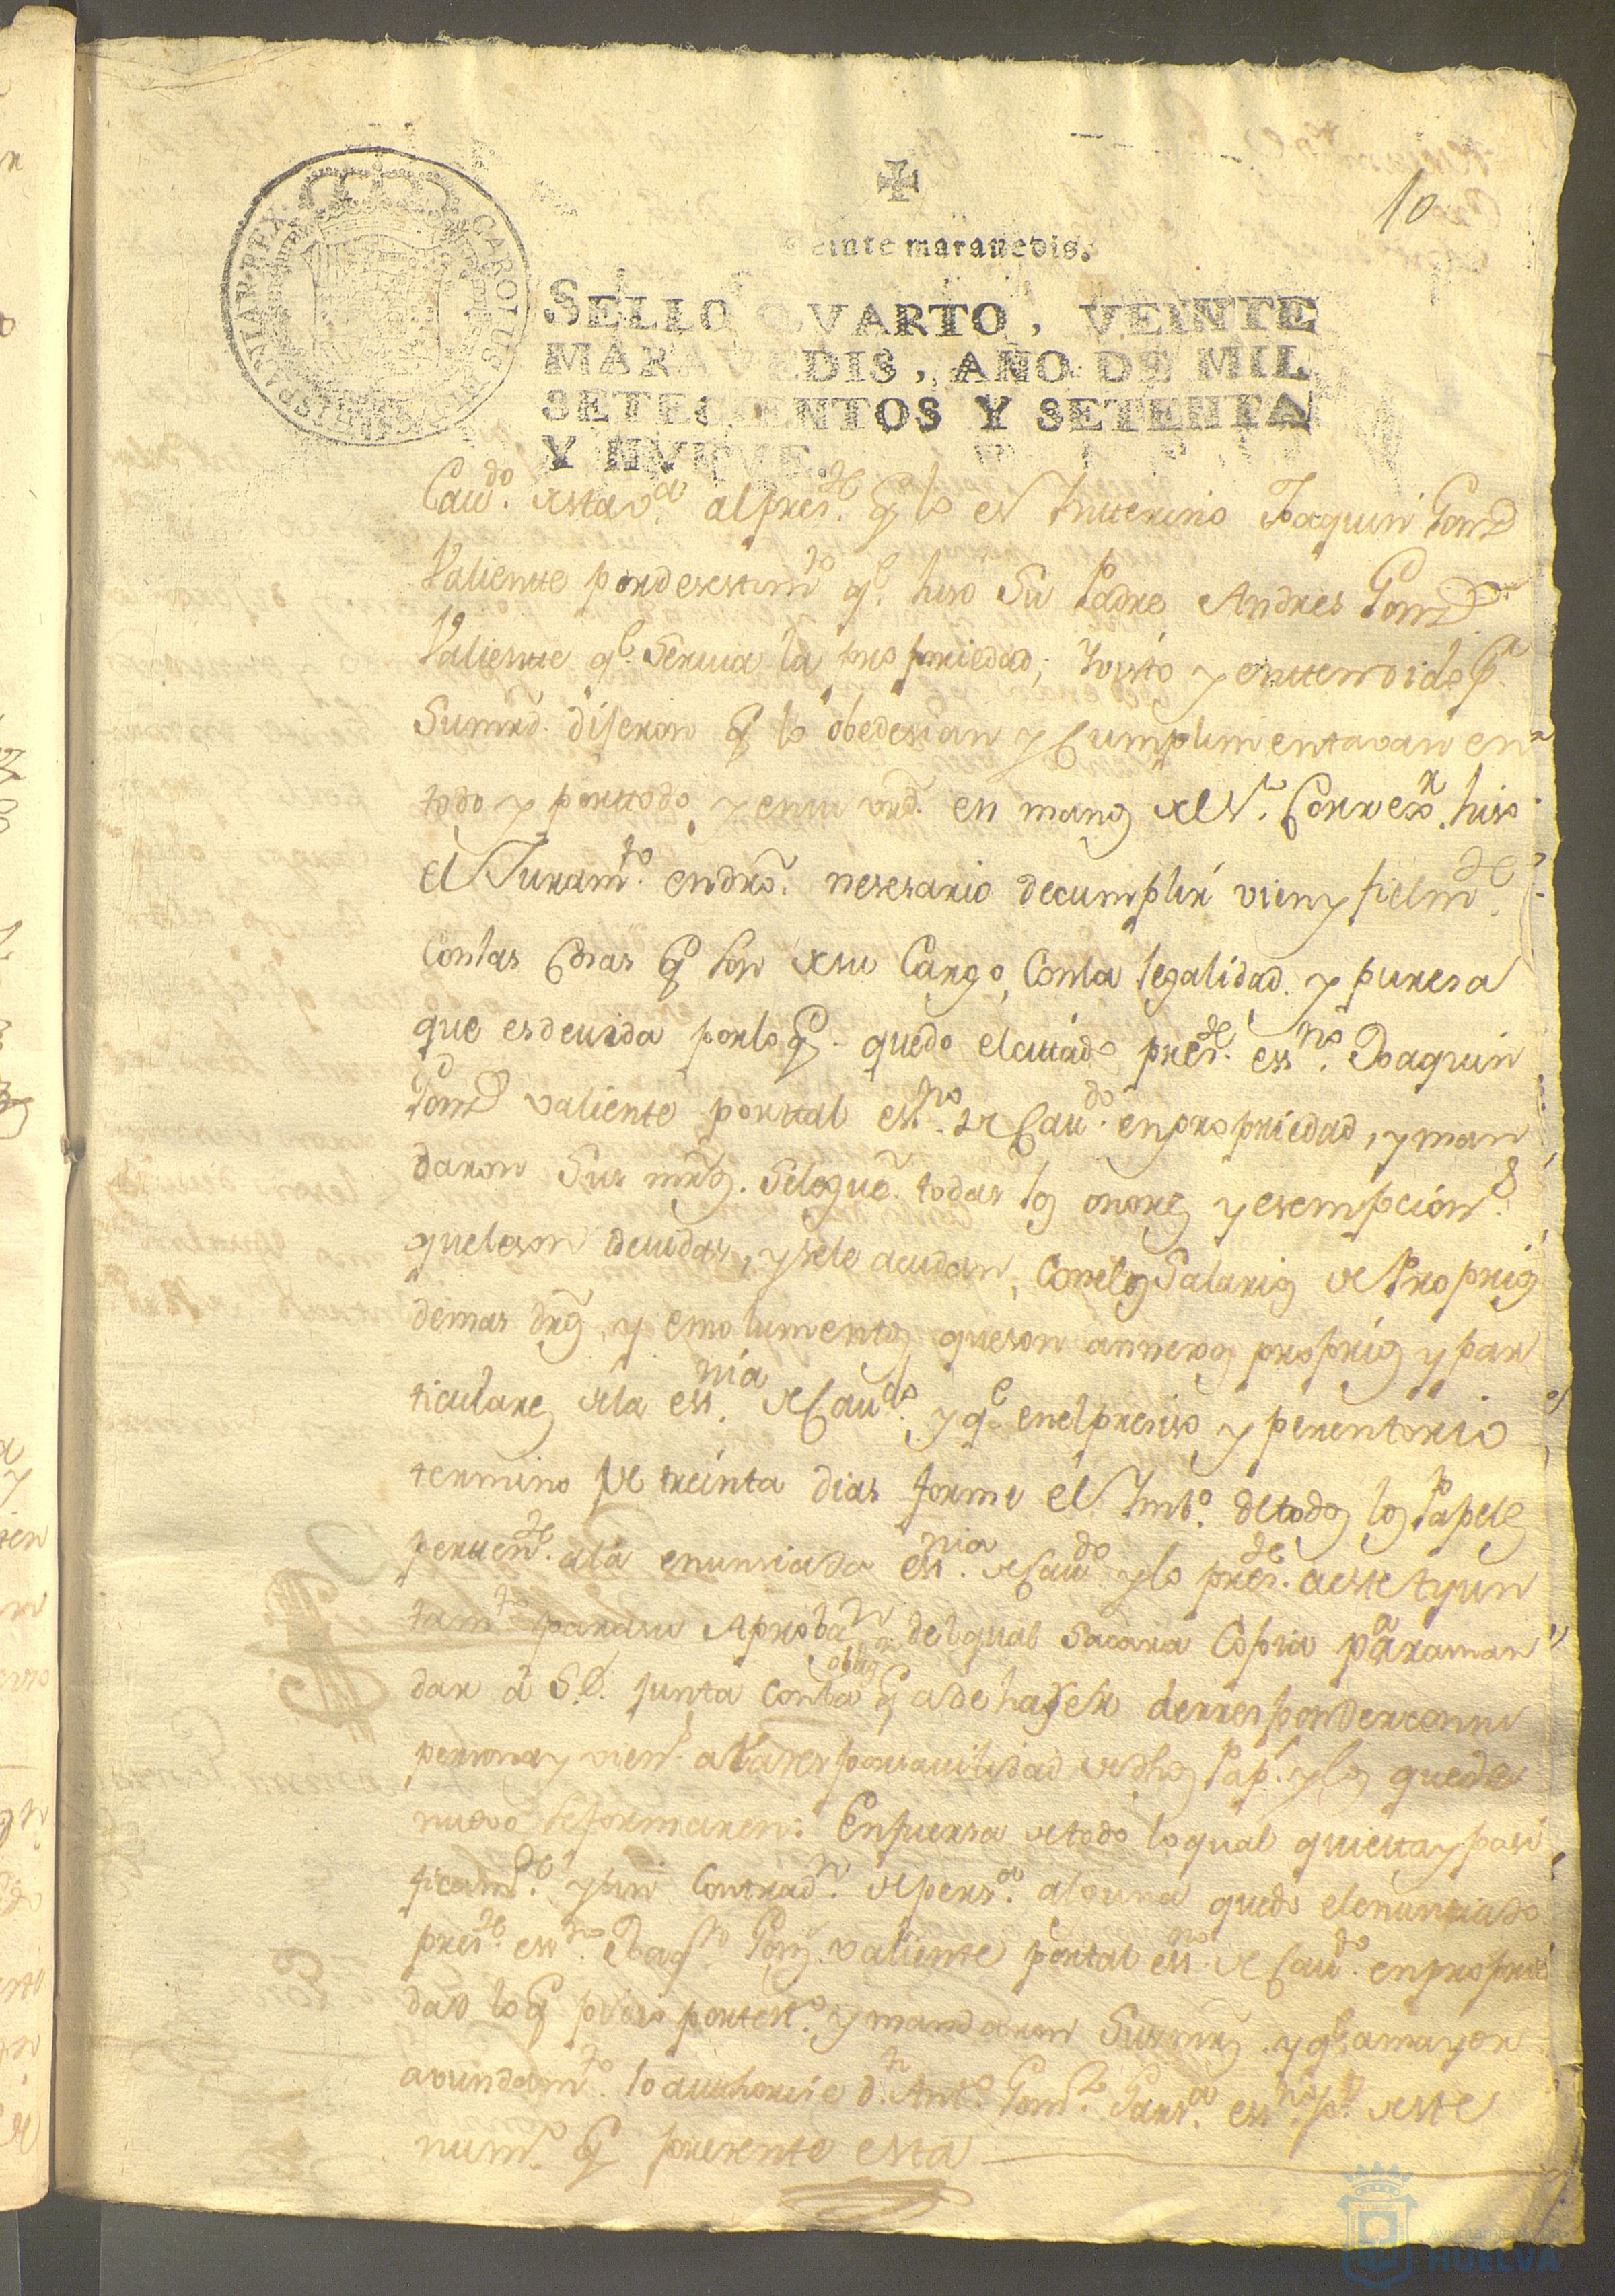 10
Veinte maravedis.
SELLO QVARTO, VEINTE
MARAVEDIS, AÑO DE MIL
SETECIENTOS Y SETENTA
Y NVEVE.
CAROLUS HISPANIAR REX
Caudo. de esta va. al preste. qe lo es Interino Joaquin Gonz
Valiente por desestimto qe. hiso Su Padre Andres Gonz
Valiente qe. Servia la propriedad; visto y entendido pr.
Sumrd. dijeron qe lo obedesian y Cumplimentavan en
todo y porttodo, y en su vrd. en manos del Sr. Correxr. hiso
el Juramto. en dro. nesesario de cumplir vien y fielmte.
con las cosas qe son de su Cargo, Con la legalidad y puresa
que es devida por lo qe. quedo el cittado preste. essno. Joaquin
Gonz valiente por tal essno. de Caudo. en propriedad, y man
daron Sus mrds. Se le gue. todas los onores y esempcions.
que le son devidas, y se le acudan, Con los Salarios de Proprios
demas dros, y emolumentos que son annexos proprios y par
ticulares de la essnia. de Caudo. y qe. en el presiso y perentorio
termino de treinta dias forme el Imbo. de todos los Papeles
pertente. a la enunsiada essnia. de Caudo. y lo preste. a este Ayun
tamto para su Aproban del qual sacara Copia para man
dar a S.E. Junta Con la obligon qe a de haser de rresponder con su
persona y viens. a la responsavilidad de dhos Pap. y los que de
nuevo se formaren: En fuersa de todo lo qual quietta y pasi
ficamte. y sin Contradn. de persa. alguna quedo el enunsiado
preste. essno. Joaqn Gonz. valiente por tal essno. de Caudo. en proprie
dad lo qe pidio por testo. y mandaron Sus mrds. y qe. a mayor
avundamto. lo authorise dn. Anto. Gomz. Garsa. essno. pp. de este
numo. qe presente esta
Ayuntamiento de
HUELVA